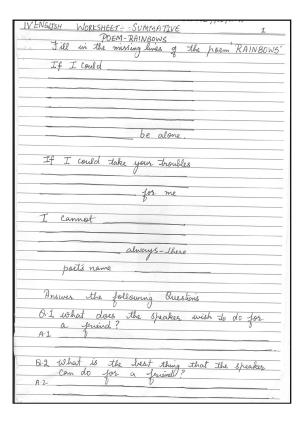 IV ENGLISH WORKSHEET - SUMMATIVE 1
POEM - RAINBOWS
Fill in the missing lines of the poem 'RAINBOWS'
If I could
be alone.
If I could take your troubles
for me
I cannot
always-there
poet's name
Answer the following Questions
Q.1 what does the speaker wish to do for
a friend?
A.1
Q.2 What is the best thing that the speaker
can do for a friend?
A.2